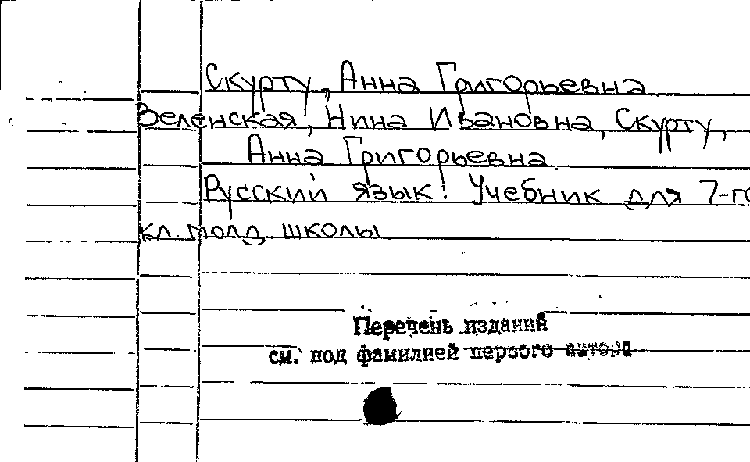 Скурту, Анна Григорьевна
Зеленская, Нина Ивановна, Скурту,
Анна Григорьевна
Русский язык: Учебник для 7-го
кл. молд. школы
Перечень изданий
см. под фамилией первого автора